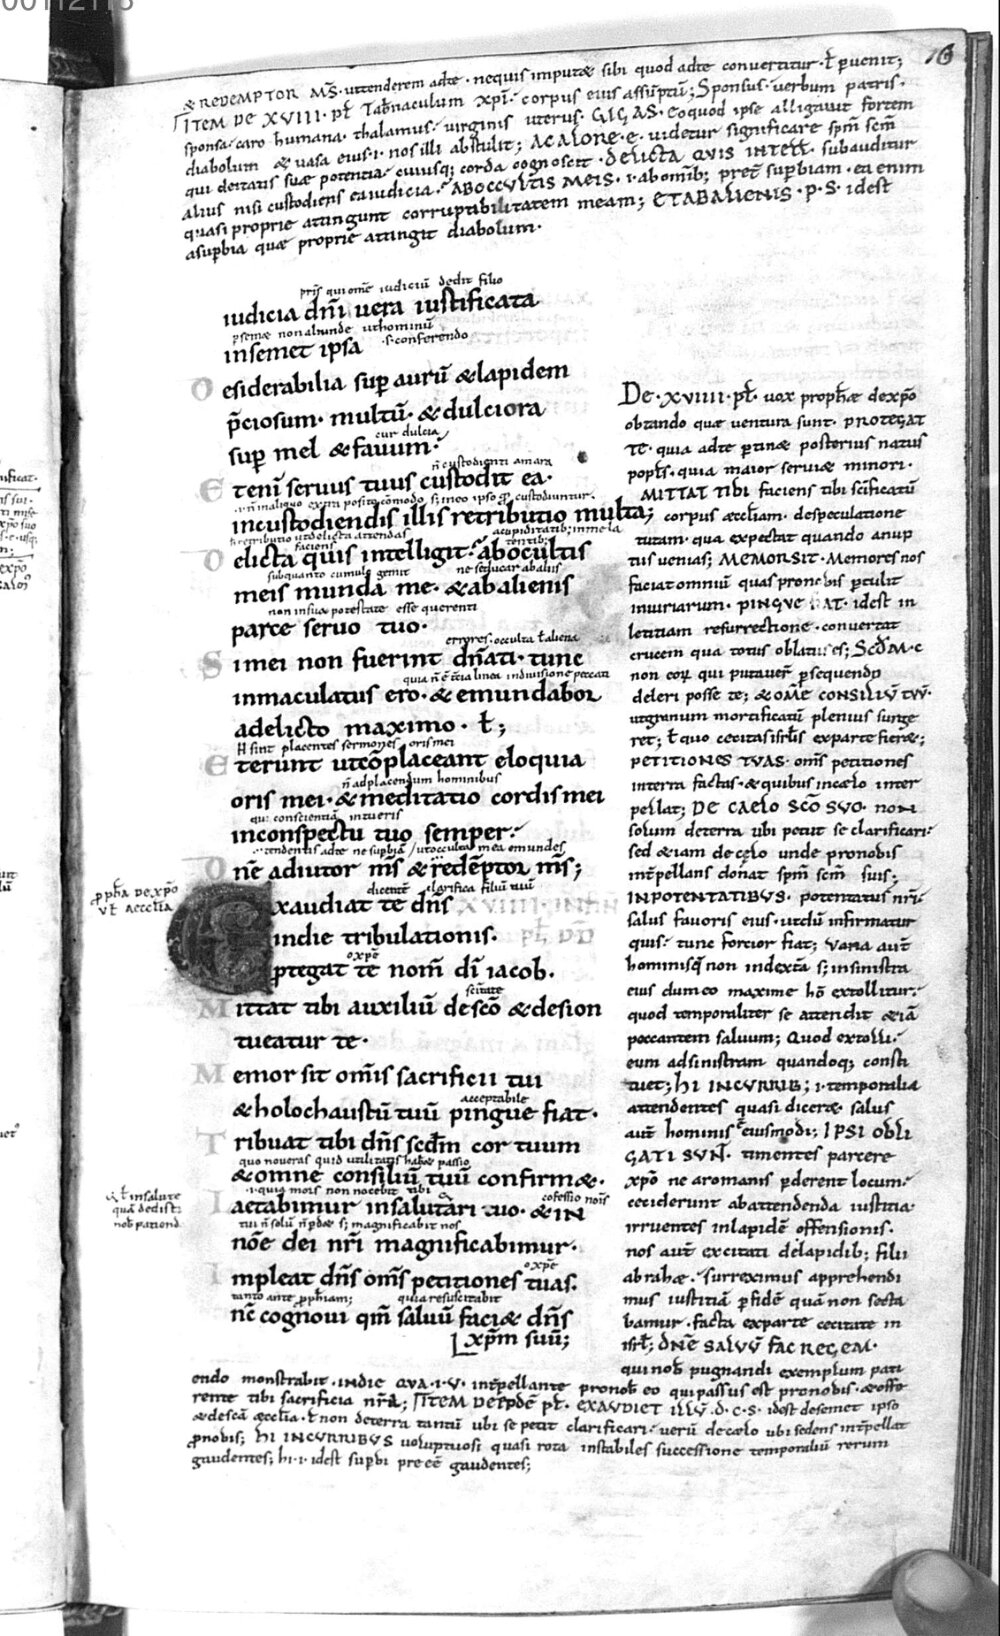 00112118
16
& REDEMPTOR MS · ut tenderem adte · nequis imputæ sibi quod adte convertitur · ł puenit;
ITEM DE XVIII · pł Tab̄naculum xp̄i · corpus eius assūptū; Sponsus · verbum patris ·
sponsa · caro humana · thalamus · virginis uterus · GIGAS · eoquod ipse alligavit fortem
diabolum & uasa eius · i · nos illi abstulit; ACALORE · e · videtur significare sp̄m sc̄m
qui deitatis suæ potentia · cuiusq; corda cognoscit · DELICTA QVIS INTELł · subauditur
alius nisi custodiens ea iudicia · ABOCCVLTIS MEIS · i · abomīb; pret̄ supbiam · ea enim
quasi proprie attingunt corruptibilitatem meam; ETABALIENIS · P · S · idest
asupbia quæ proprie attingit diabolum ·
pr̄is qui om̄e iudiciū dedit filio
iudicia dn̄i uera iustificata
psemæ non aliunde ut hominū
insemet ipsa
· s · conferendo
Desiderabilia sup aurū & lapidem
p̄ciosum · multū · & dulciora
cur dulcia
sup mel & fauum ·
n̄ custodienti amara
Etenī seruus tuus custodit ea ·
incustodiendis illis retributio multa;
Delicta quis intelligit · abocultis
subquanto cumulo gemit ne seducar abaliis
meis munda me · & abalienis
non insua potestate esse querenti
parce seruo tuo ·
errores · occulta ł aliena
Simei non fuerint dn̄ati · tunc
inmaculatus ero · & emundabor
adelicto maximo · ł;
H sint placentes sermones oris mei
Eterunt ut cōplaceant eloquia
n̄ adplacendum hominibus
oris mei · & meditatio cordis mei
qui conscientiā intueris
inconspectu tuo semper ·
· tendentis adte ne supbiā / ut occulta mea emundes
Dn̄e adiutor m̄s & redēptor m̄s;
dicentē clarifica filiū tuū
p ph̄a de xp̄o
vł aeccłia
Exaudiat te dn̄s
indie tribulationis ·
oxp̄e
ptegat te nom̄ dī iacob ·
sc̄itate
Mittat tibi auxiliū descō & desion
tueatur te ·
Memor sit om̄is sacrificii tui
acceptabile
& holochaustū tuū pingue fiat ·
Tribuat tibi dn̄s scd̄m cor tuum
quo noueras quid utilitatis habeæ passio
& omne consiliū tuū confirmæ ·
· i · quia mors non nocebit tibi
cōfessio nois
Laetabimur insalutari tuo · & IN
& ł insalute
quā dedisti
nob̄ patiend
tui n̄ solū n̄ pdæ s; magnificabit nos
nōe dei nr̄i magnificabimur ·
oxp̄e
Impleat dn̄s om̄s petitiones tuas ·
tanto ante p ph̄iam; quia resuscitabit
nc̄ cognoui qm̄ saluū faciæ dn̄s
xp̄m suū;
De · XVIIII · pł · uox prophæ dexp̄o
obtando quæ ventura sunt · PROTEGAT
TE · quia adte ptinæ posterius natus
popłs · quia maior seruiæ minori ·
MITTAT TIBI faciens tibi scificatū
corpus æcclīam · despeculatione
tutam · qua expectat quando anup
tus venias; MEMORSIT · Memores nos
faciat omniū quas pronobis ptulit
iniuriarum · PINGVE FIAT · idest in
letitiam resurrectione · convertat
crucem qua totus oblatus es; SCD̄M · C
non cor qui putauer̄ psequendo
deleri posse te; & OM̄E CONSILIV̄ TVV̄ ·
ut granum mortificatū plenius surge
ret; ł quo cecitas isrłis exparte fieræ;
PETITIONES TVAS · om̄s petitiones
interra factas · & quibus incælo inter
pellat; DE CAELO SC̄O SVO · non
solum deterra ubi petiit se clarificari
sed & iam decęlo unde pronobis
int̄pellans donat sp̄m sc̄m suis;
INPOTENTATIBVS · potentatus nr̄i
salus fauoris eius · ut dū infirmatur
quis · tunc fortior fiat; Vana aut̄
hominis q̄ non indextā s; insinistra
eius dum eo maxime hō extollitur ·
quod temporaliter se attendit & iā
peccantem saluum; Quod extolli
eum adsinistram quandoq; consti
tuet; HI INCVRRIB; · i · temporalia
attendentes quasi diceræ · salus
aut̄ hominis eiusmodi; IPSI OBLI
GATI SVN̄ · timentes parcere
xp̄o ne aromanis pderent locum
ceciderunt abattendenda iustitia
irruentes inlapidē offensionis ·
nos aut̄ excitati delapidib; filii
abrahæ · surreximus apprehendi
mus iustitiā pfidē quā non secta
bamur · facta exparte cecitate in
isrł; DN̄E SALVV̄ FAC REGEM ·
qui nob̄ pugnandi exemplum pati
endo monstrabit · INDIE QVA · I · V · int̄pellante pronob̄ eo qui passus est pronobis · & offe
rente tibi sacrificia nr̄a; ITEM DEEODĒ pł · EXAVDIET ILLV̄ · D · C · S · idest desemet ipso
& descā æcclia · ł non deterra tantū ubi se petit clarificari · uerū decælo ubi sedens int̄pellat
pnobis; HI INCVRRIBVS uoluptuosi quasi rota instabiles successione temporaliū rerum
gaudentes; hi · i · idest supbi preeē gaudentes;